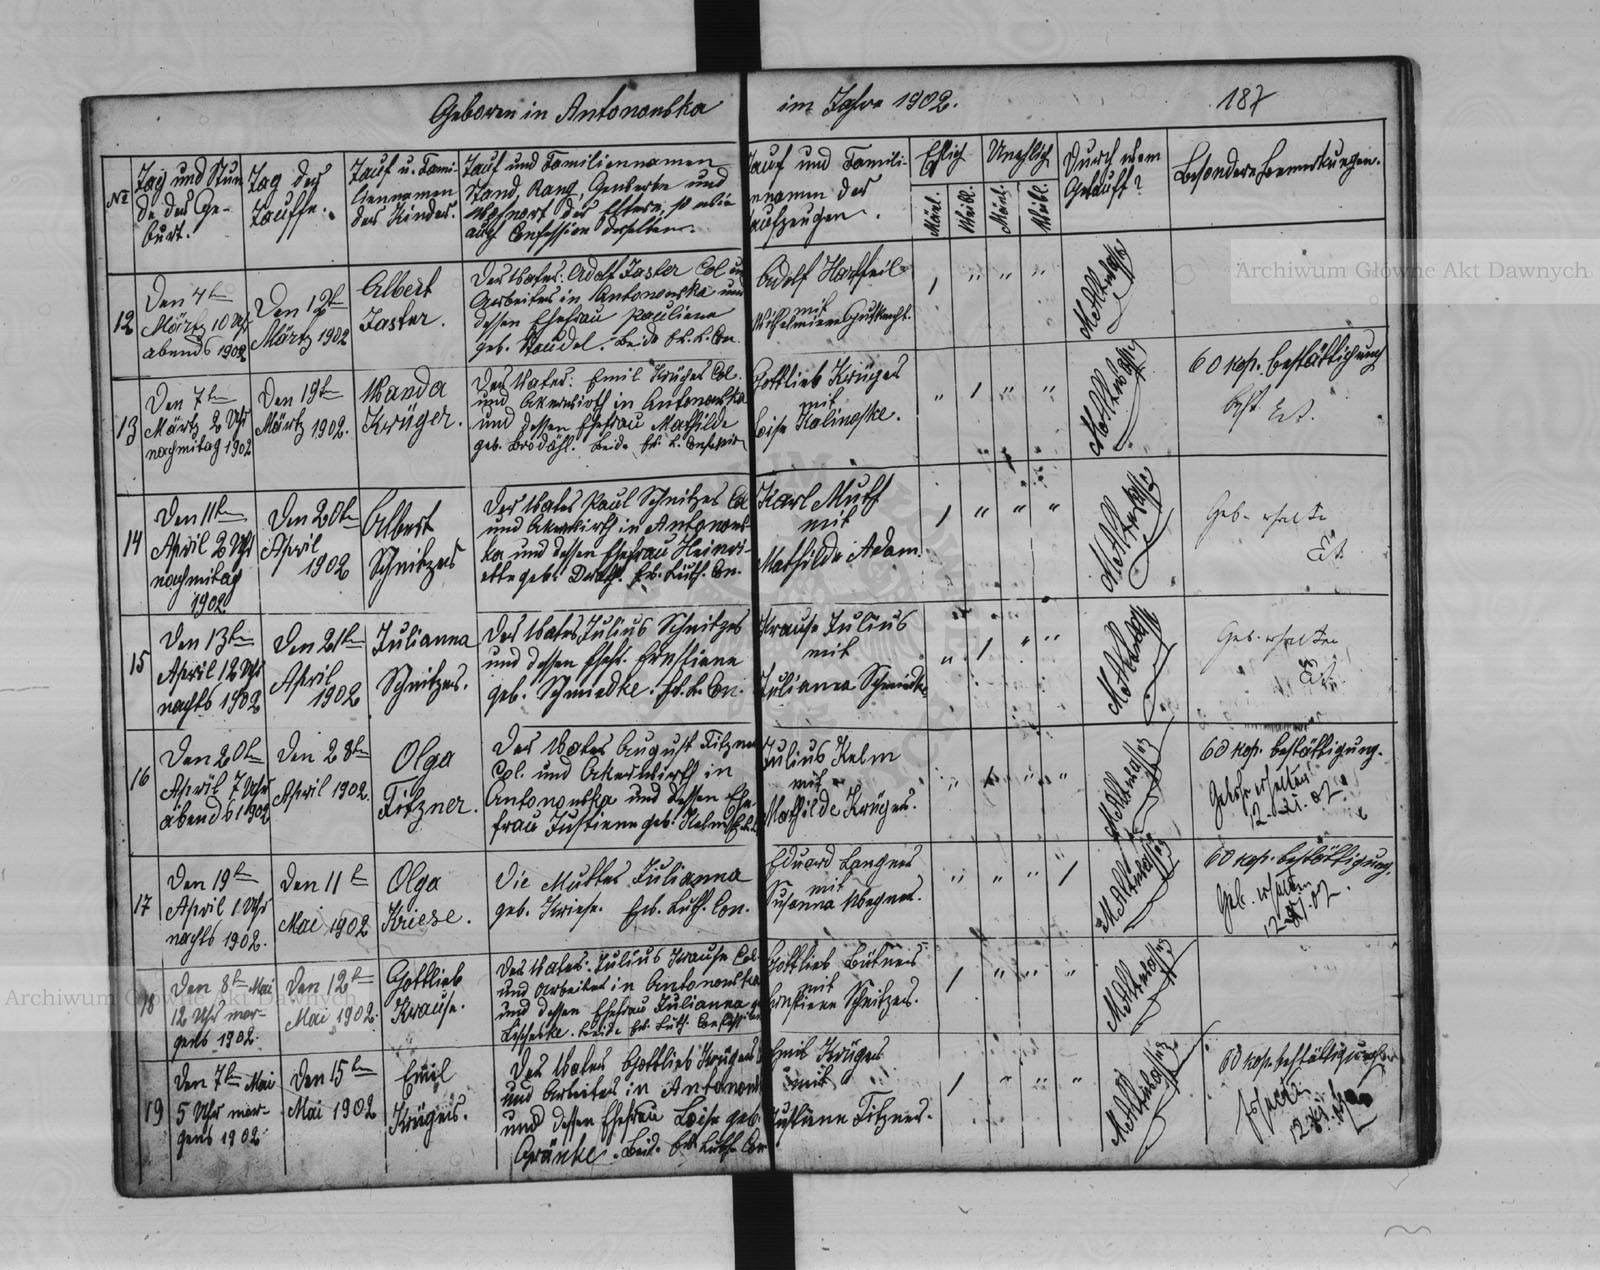 Geboren in Antonowka im Jahre 1902. 187
№
Tag und Stun
de der Ge-
burt.
Tag der
Tauffe.
Tauf u. Fami-
liennamen
der Kinder.
Tauf und Familiennamen
Stand, Rang, Gewerbe und
Wohnort der Eltern, so wie
auch Confession derselben.
Tauf und Famili-
ennamen der
Taufzeugen.
Ehlich
Mänl.
Weibl.
Unehlich
Mänl.
Weibl.
Durch wem
Getauft?
Besondere Bemerkungen.
12
Den 4ten
Märtz 10 Uhr
abends 1902
Den 12ten
Märtz 1902
Albert
Jaster.
Der Vater: Adolf Jaster Col. und
Arbeiter in Antonowka und
dessen Ehefrau Pauliene
geb. Staudel. Beide Ev. L. Con.
Adolf Hartfeil
mit
Wilhelmiene Gutknecht.
1 " " "
13
Den 7ten
Märtz 2 Uhr
nachmitag 1902
Den 19ten
Märtz 1902.
Wanda
Krüger.
Der Vater: Emil Krüger Col.
und Akerwirth in Antonowka
und dessen Ehefrau Mathilde
geb. Brodöhl. Beide Ev. L. Confession
Gottlieb Krüger
mit
Loise Kalinoske.
" 1 " "
60 kop. bestättichung
14
Den 11ten
April 2 Uhr
nachmitag
1902
Den 20ten
April
1902
Albert
Schnitzer
Der Vater Paul Schnitzer Col
und Akerwirth in Antonow-
ka und dessen Ehefrau Heinri-
ette geb. Ev. Luth. Con.
Karl Muth
mit
Mathilde Adam.
1 " " "
Geb. erhalten
15
Den 13ten
April 12 Uhr
nachts 1902
Den 21ten
April
1902
Julianna
Schnitzer.
Der Vater Julius Schnitzer
und dessen Ehefr. Ernstiene
geb. Schmiedke. Ev. L. Con.
Krause Julius
mit
Julianna Schmiedke
" 1 " "
Geb. erhalten
16
Den 20ten
April 7 Uhr
abends 1902
Den 28ten
April 1902.
Olga
Fitzner.
Der Vater August Fitzner
Col. und Akerwirth in
Antonowka und dessen Ehe-
frau Justiene geb. Kelm Ev. L.
Julius Kelm
mit
Mathilde Krüger.
" 1 " "
60 kop. bestättigung.
Gebühr erhalten
12.21.02
17
Den 19ten
April 1 Uhr
nachts 1902.
Den 11ten
Mai 1902
Olga
Kriese.
Die Mutter Julianna
geb. Kriese. Ev. Luth. Con.
Eduard Langner
mit
Susanna Wegner.
" " " 1
60 kop. bestättigung.
Geb. erhalten
18
Den 8ten Mai
12 Uhr mor-
gens 1902.
Den 12ten
Mai 1902.
Gottlieb
Krause.
Der Vater: Julius Krause Col.
und Arbeiter in Antonowka
und dessen Ehefrau Julianna g.
Beide Ev. Luth. Confession
Gottlieb Bütner
mit
Ernstiene Schnitzer.
1 " " "
19
Den 7ten Mai
5 Uhr mor-
gens 1902.
Den 15ten
Mai 1902
Emil
Krüger.
Der Vater Gottlieb Krüger
und Arbeiter in Antonow
und dessen Ehefrau Loise geb.
Gränke. Beid. Ev. Luth. Con
Emil Krüger
mit
Justiene Fitzner.
1 " " "
60 kop. bestättigung
erhalten
Archiwum Główne Akt Dawnych
Archiwum Główne Akt Dawnych